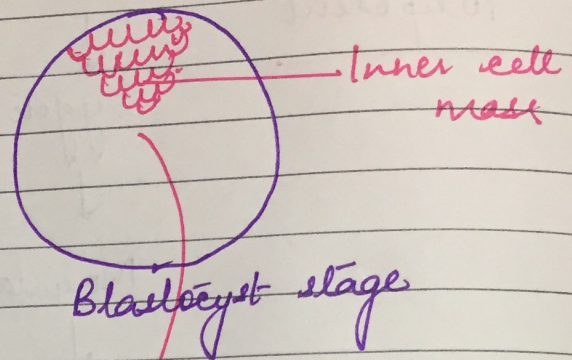 Inner cell
mass
Blastocyst stage